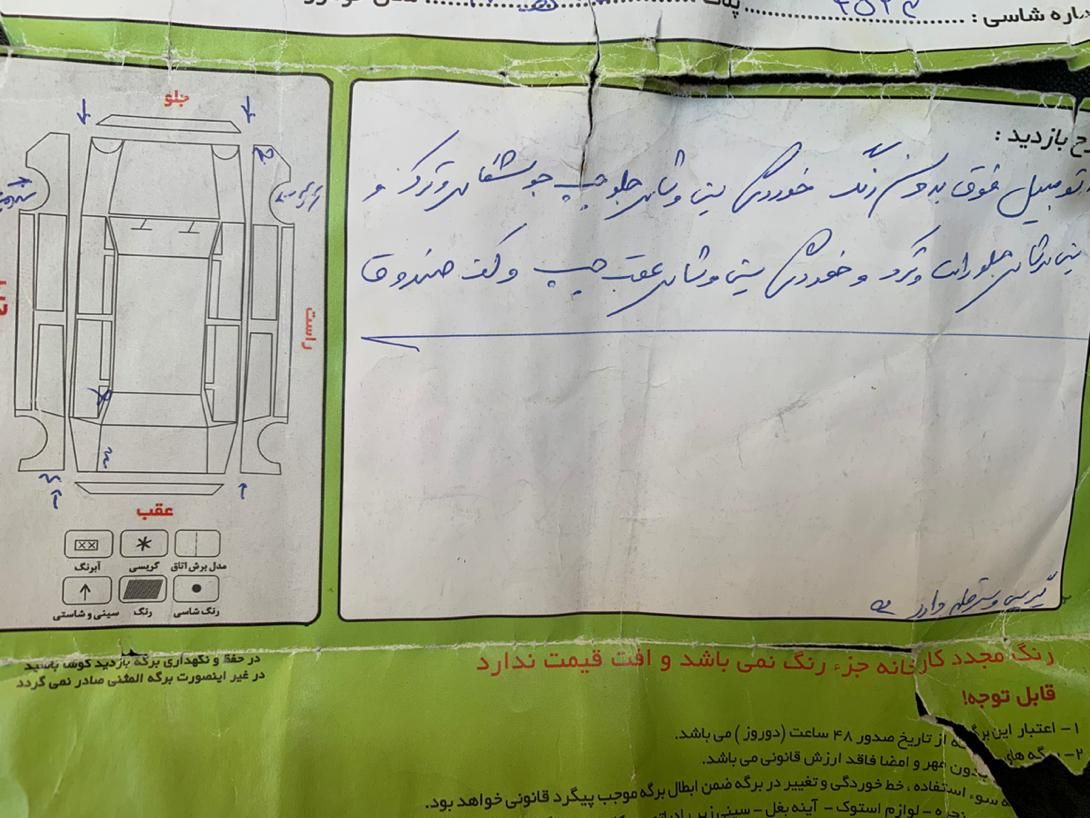 اره شاسی : ۲۵۲۴ پلاک
رح بازدید :
توموبیل فوق بدون رنگ خوردگی سینی و شاسی جلو چپ جوشکاری و ترک و
سینی و شاسی جلو راست و ترک و خوردگی سینی و شاسی عقب چپ و کف صندوق
دارد
جلو
راست
عقب
آبرنگ
کریسی
مدل برش اتاق
سینی و شاستی
رنگ
رنگ شاسی
در حفظ و نگهداری برگه بازدید کوشا باشید
در غیر اینصورت برگه المثنی صادر نمی گردد
رنگ مجدد کارخانه جزء رنگ نمی باشد و افت قیمت ندارد
قابل توجه!
۱- اعتبار این برگه از تاریخ صدور ۴۸ ساعت (دوروز) می باشد.
۲- برگه های بدون مهر و امضا فاقد ارزش قانونی می باشد.
سوء استفاده ، خط خوردگی و تغییر در برگه ضمن ابطال برگه موجب پیگرد قانونی خواهد بود.
لوازم استوک - آینه بغل - سینی زیر رادیاتور